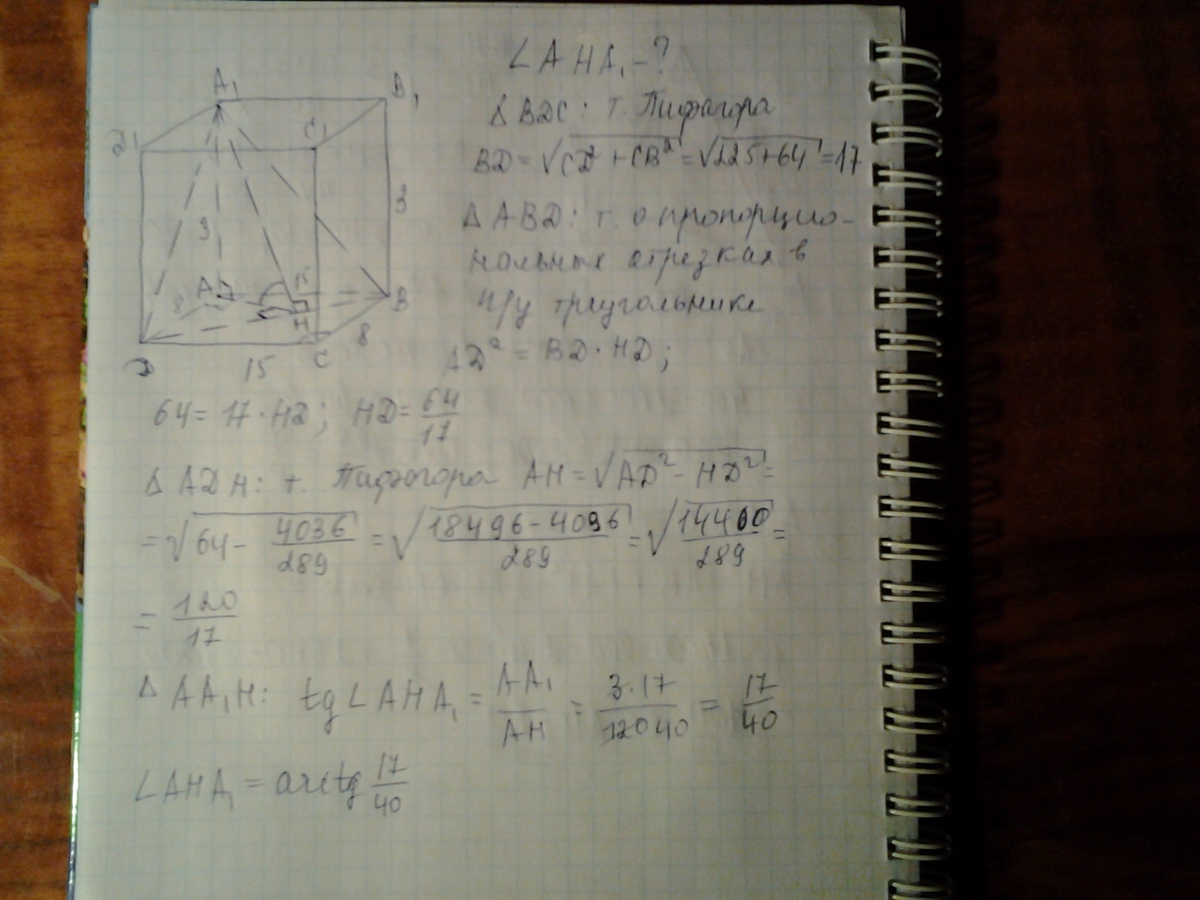 ∠AHA₁ - ?
Δ BDC: т. Пифагора
BD = √(CD² + CB²) = √(225+64) = 17
Δ ABD: т. о пропорцио-
нальных отрезках в
п/у треугольнике
AD² = BD · HD;
A₁
B₁
C₁
D₁
3
3
A
15
8
B
H
8
D
C
15
64 = 17 · HD; HD = 64/17
Δ ADH: т. Пифагора AH = √(AD² - HD²) =
= √(64 - 4036/289) = √((18496 - 4096)/289) = √(14400/289) =
= 120/17
Δ AA₁H: tg ∠AHA₁ = AA₁/AH = 3·17/120 40 = 17/40
∠AHA₁ = arctg 17/40